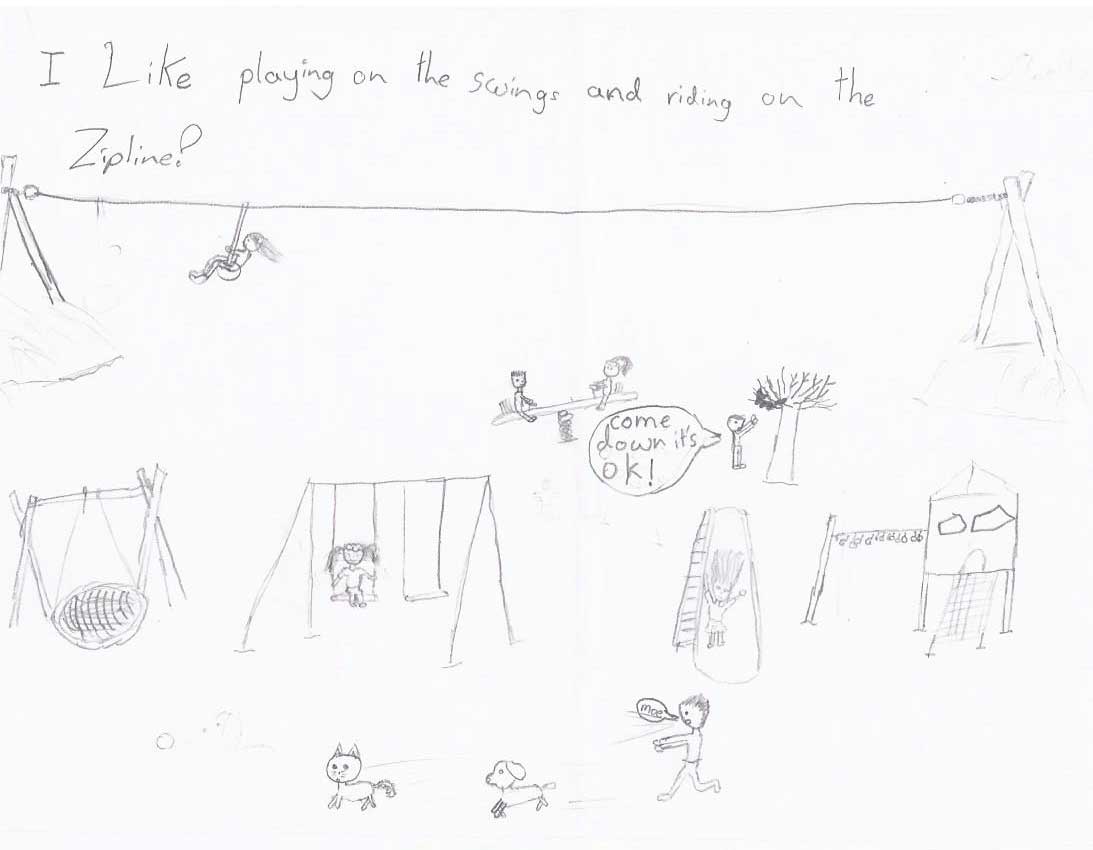 I Like playing on the swings and riding on the
Zipline!
come
down it's
ok!
moe